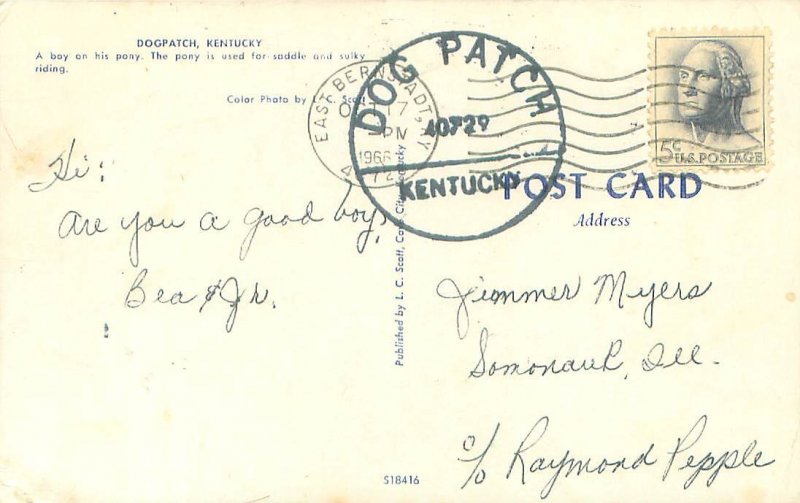 DOGPATCH, KENTUCKY
A boy on his pony. The pony is used for saddle and sulky
riding.
Color Photo by L. C. Scott
EAST BERNSTADT, KY
17
PM
1966
DOG PATCH
40729
KENTUCKY
5¢
U.S. POSTAGE
POST CARD
Address
Hi:
Are you a good boy,
Bea & Jr.
Published by L. C. Scott, Cave City, Kentucky
Jimmer Myers
Somonauk, Ill.
c/o Raymond Pepple
S18416